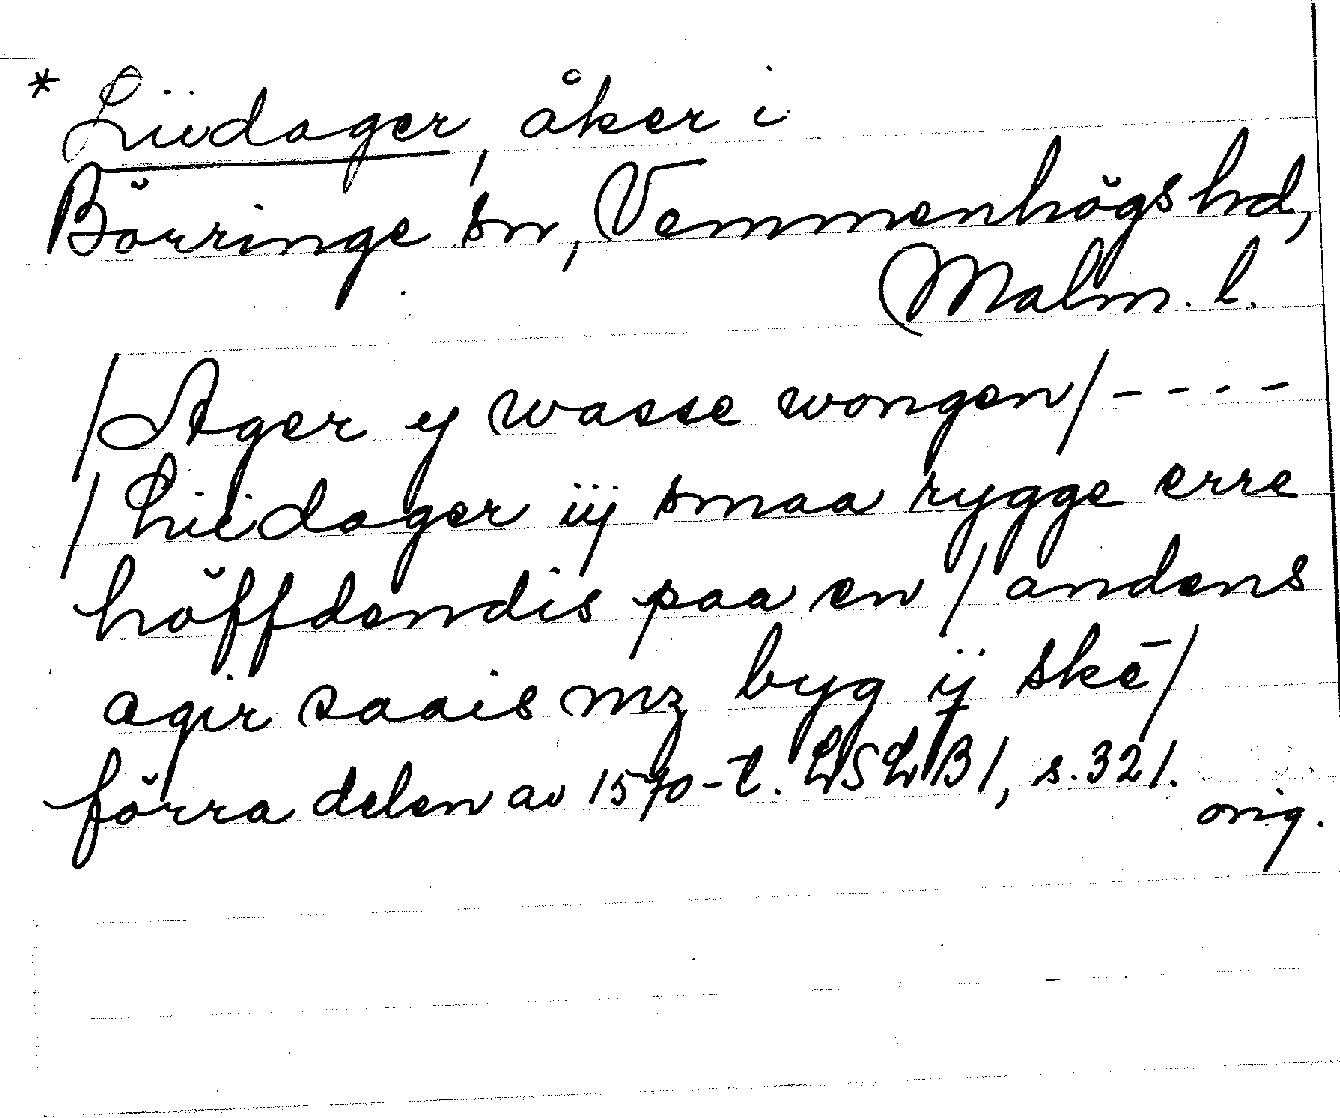 * Liidager, åker i
Börringe sn, Vemmenhögs hd,
Malm. l.
/Ager ij wasse wongen/ - - - -
/Liidager iij smaa rygge erre
höffdendis paa en / andens
agir saais mz byg ij skē/
förra delen av 1570-t. LSLB1, s. 321.
orig.